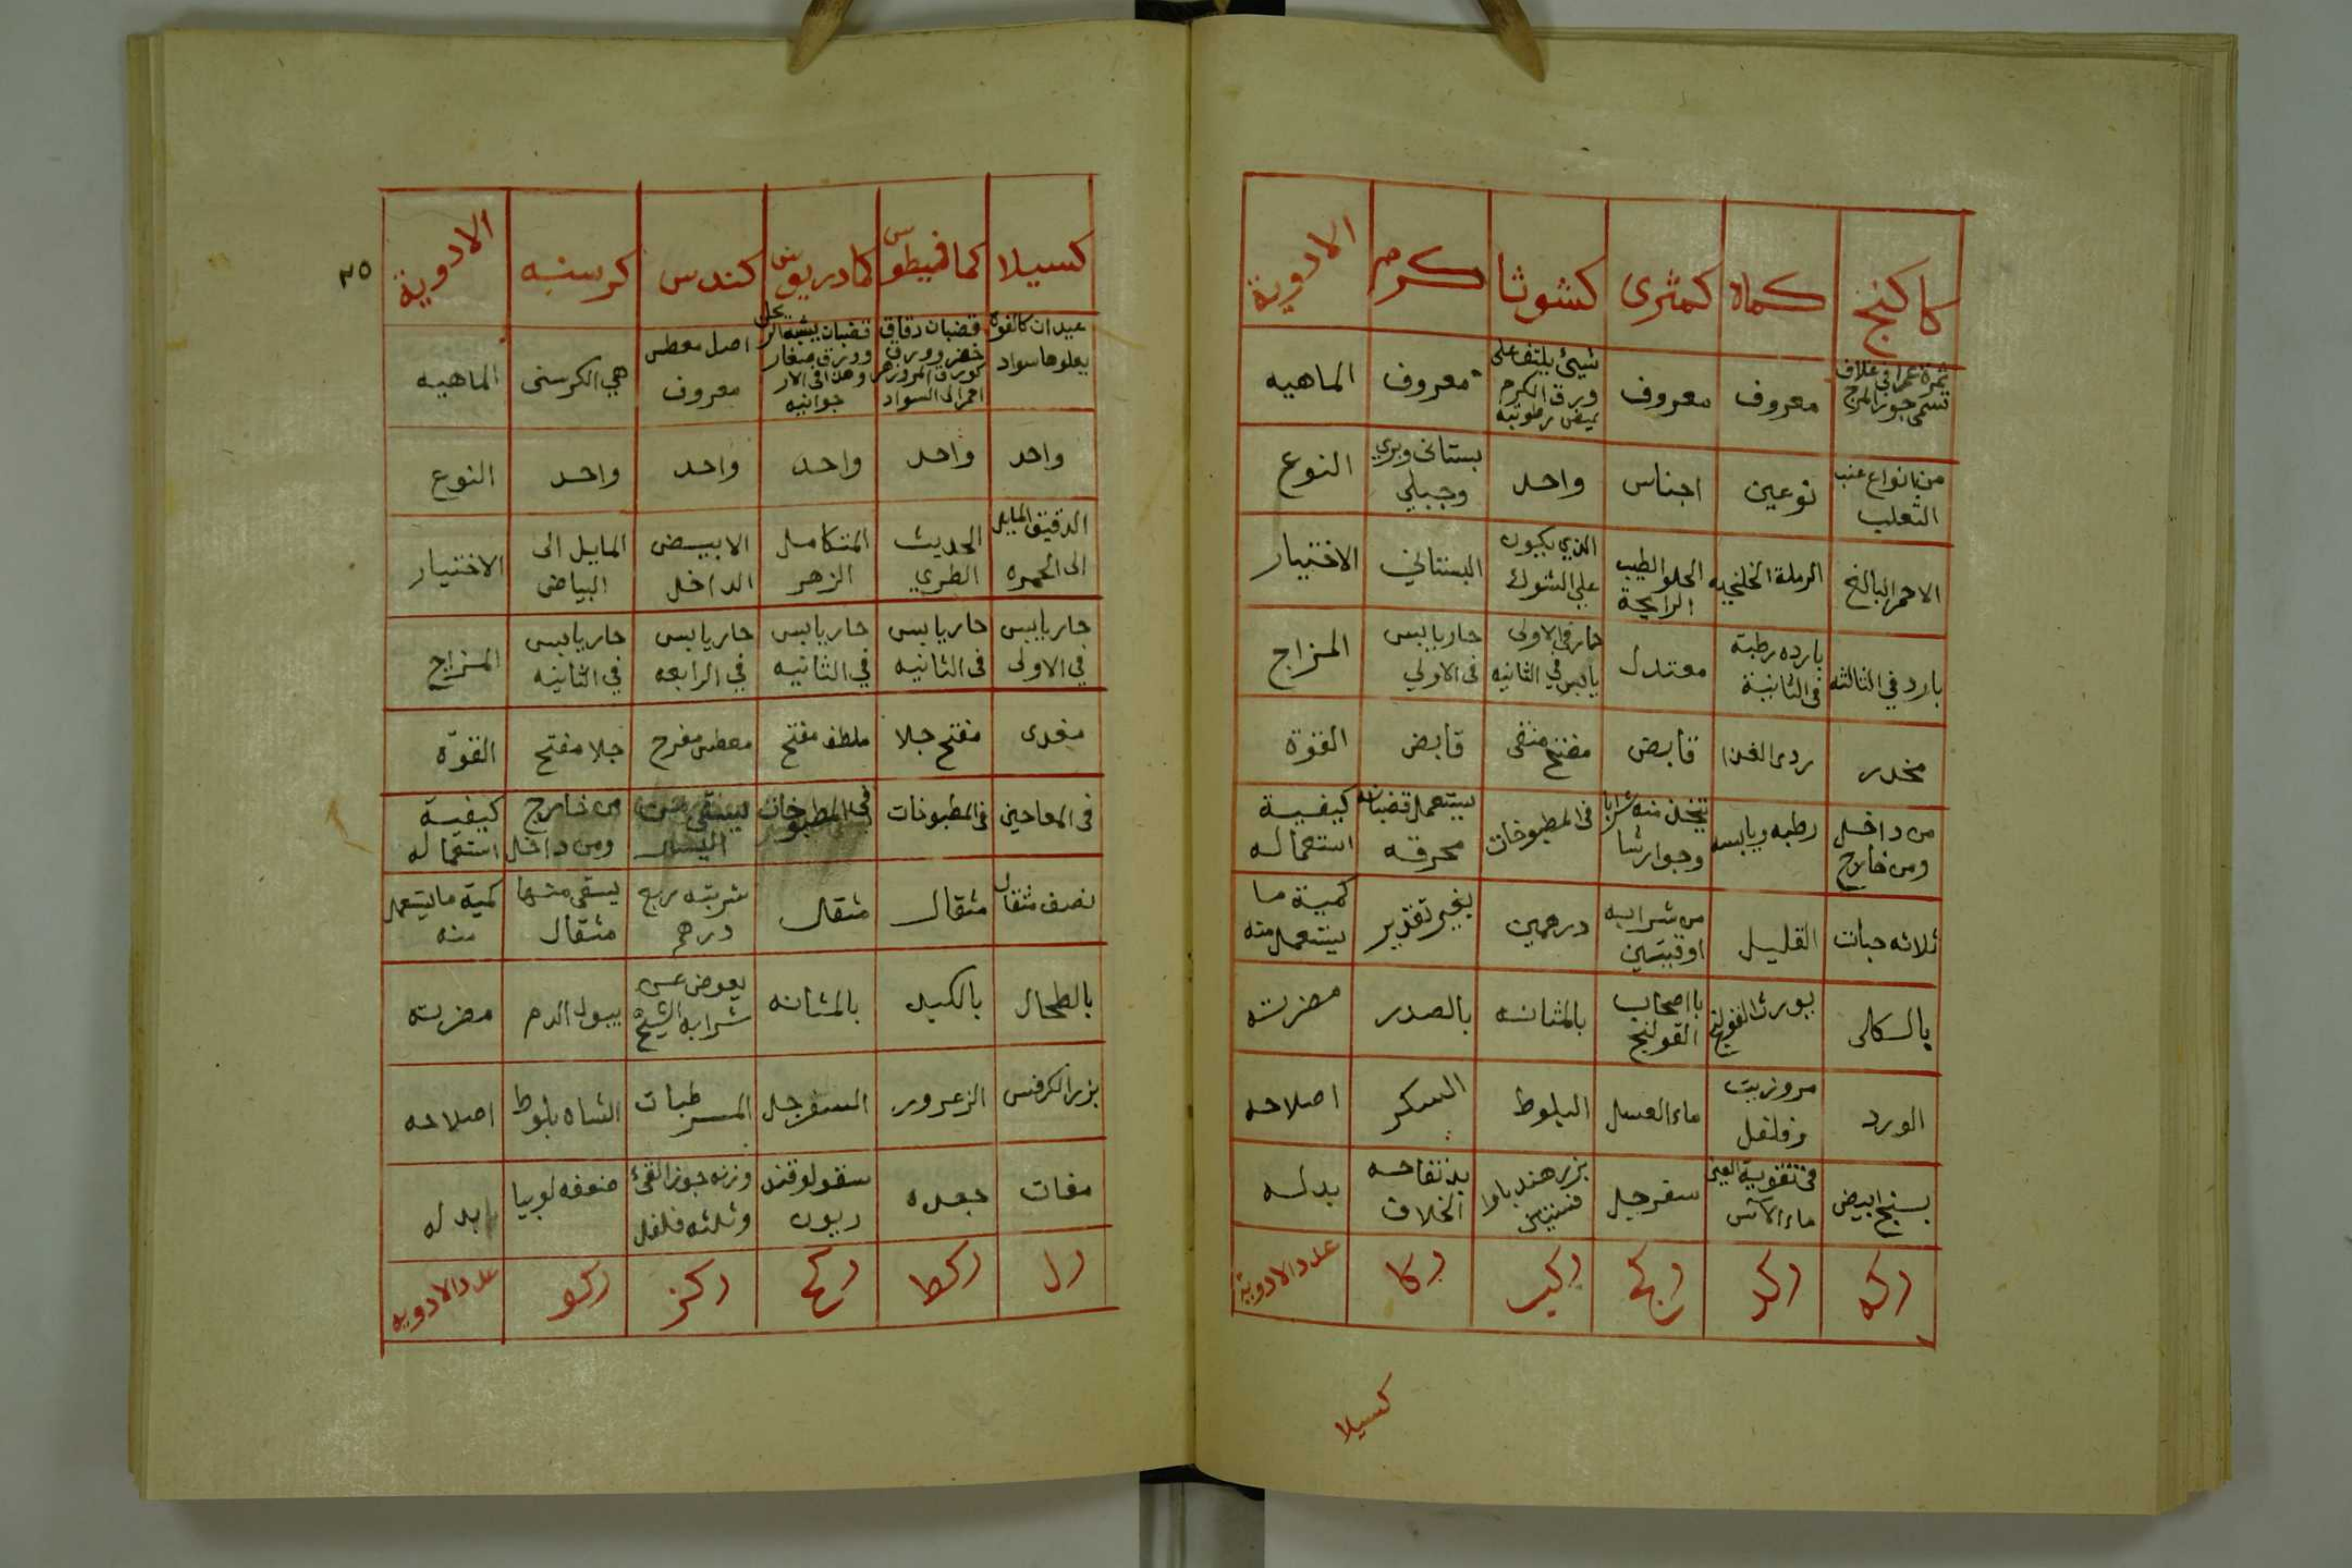 كاكنج كماة كمثرى كشوثا كرم الادوية
ثمرة حمرا في غلاف تسمى جوز المرج
معروف
معروف
شيئ يلتف على ورق الكرم
معروف
الماهيه
من انواع عنب الثعلب
نوعين
اجناس
واحد
بستانى وبري وجبلي
النوع
الاحمر البالغ
الرملة الخلنجيه
الحلو الطيب الرايحة
الذي يكون على الشوك
البستاني
الاختيار
بارد في الثالثه
بارده رطبة فى الثانية
معتدل
حار في الاولى يابس في الثانيه
حار يابس فى الاولي
المزاج
مخدر
ردى الغدا
قابض
مفتح منقى
قابض
القوة
من داخل ومن خارج
رطبه ويابسه
يتخذ منه شرابا وجوارشا
فى المطبوخات
يستعمل قضبانه محرقه
كيفية استعماله
ثلاثه حبات
القليل
من شرابه اوقيتين
درهمين
بغير تقدير
كمية ما يستعمل منه
بالسكالى
يورث القولنج
باصحاب القولنج
بالمثانه
بالصدر
مضرته
الورد
مر وزيت وفلفل
ماء العسل
البلوط
السكر
اصلاحه
بسنج ابيض
فى تقوية العين ماء الآس
سفرجل
بزر هندبا وا فسنتين
تفاحه الخلاف
بدله
ركه ركد ركج ركب ركا عدد الادوية
كسيلا
٢٥
كسيلا كمافيطوس كمادريوس كندس كرسنه الادوية
عيدان كالفوة يعلوها سواد
قضبان دقاق خضر وورق كورق المرو زهر احمر الى السواد
قضبان يشبه وورق صغار جوانيه
اصل معطس معروف
هي الكرسنى
الماهيه
واحد
واحد
واحد
واحد
واحد
النوع
الدقيق المايل الى الحمره
الحديث الطري
المتكامل الزهر
الابيض الداخل
المايل الى البياض
الاختيار
حار يابس في الاولى
حار يابس فى الثانيه
حار يابس في الثانيه
حار يابس في الرابعه
حار يابس في الثانيه
المزاج
مغدى
مفتح جلا
ملطف مفتح
معطس مفرح
جلا مفتح
القوّة
فى المعاجين
فى المطبوخات
فى المطبوخات
من خارج ومن داخل
كيفية استعماله
نصف مثقال
مثقال
مثقال
شربته ربع درهم
يسقى منها مثقال
كمية ما يستعمل منه
بالطحال
بالكبد
بالمثانه
يعوض عن شرابه الشيخ
يبول الدم
مضرته
بزر الكرفس
الزعرور
السفرجل
المرطبات
الشاه بلوط
اصلاحه
مغات
جعده
سقولوقندريون
وزنه جوز القئ وثلثه فلفل
ضعفه لوبيا
بدله
رل ركط ركح ركز ركو عدد الادويه